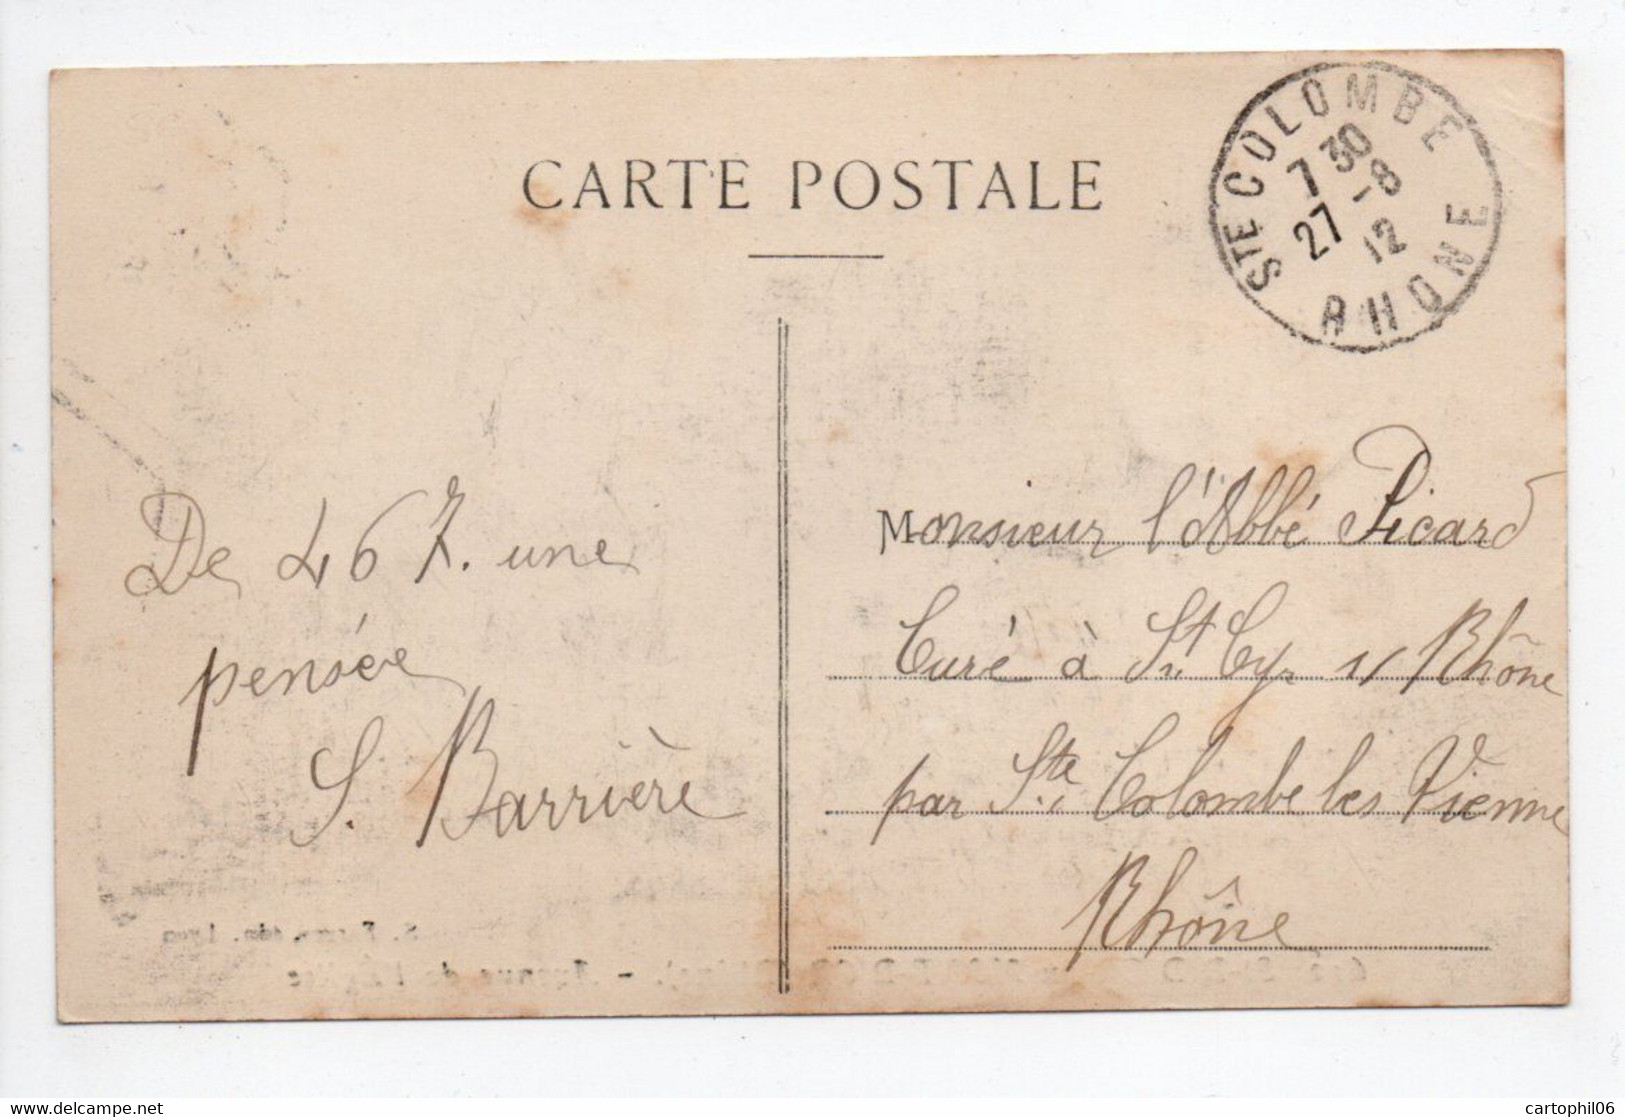 CARTE POSTALE
STE COLOMBE
7 30
27 -8
12
RHONE
De 467. une
pensée
S. Barrière
Monsieur l'Abbé Picard
Curé à St Cyr s/ Rhône
par Ste Colombe les Vienne
Rhône
cartophil06